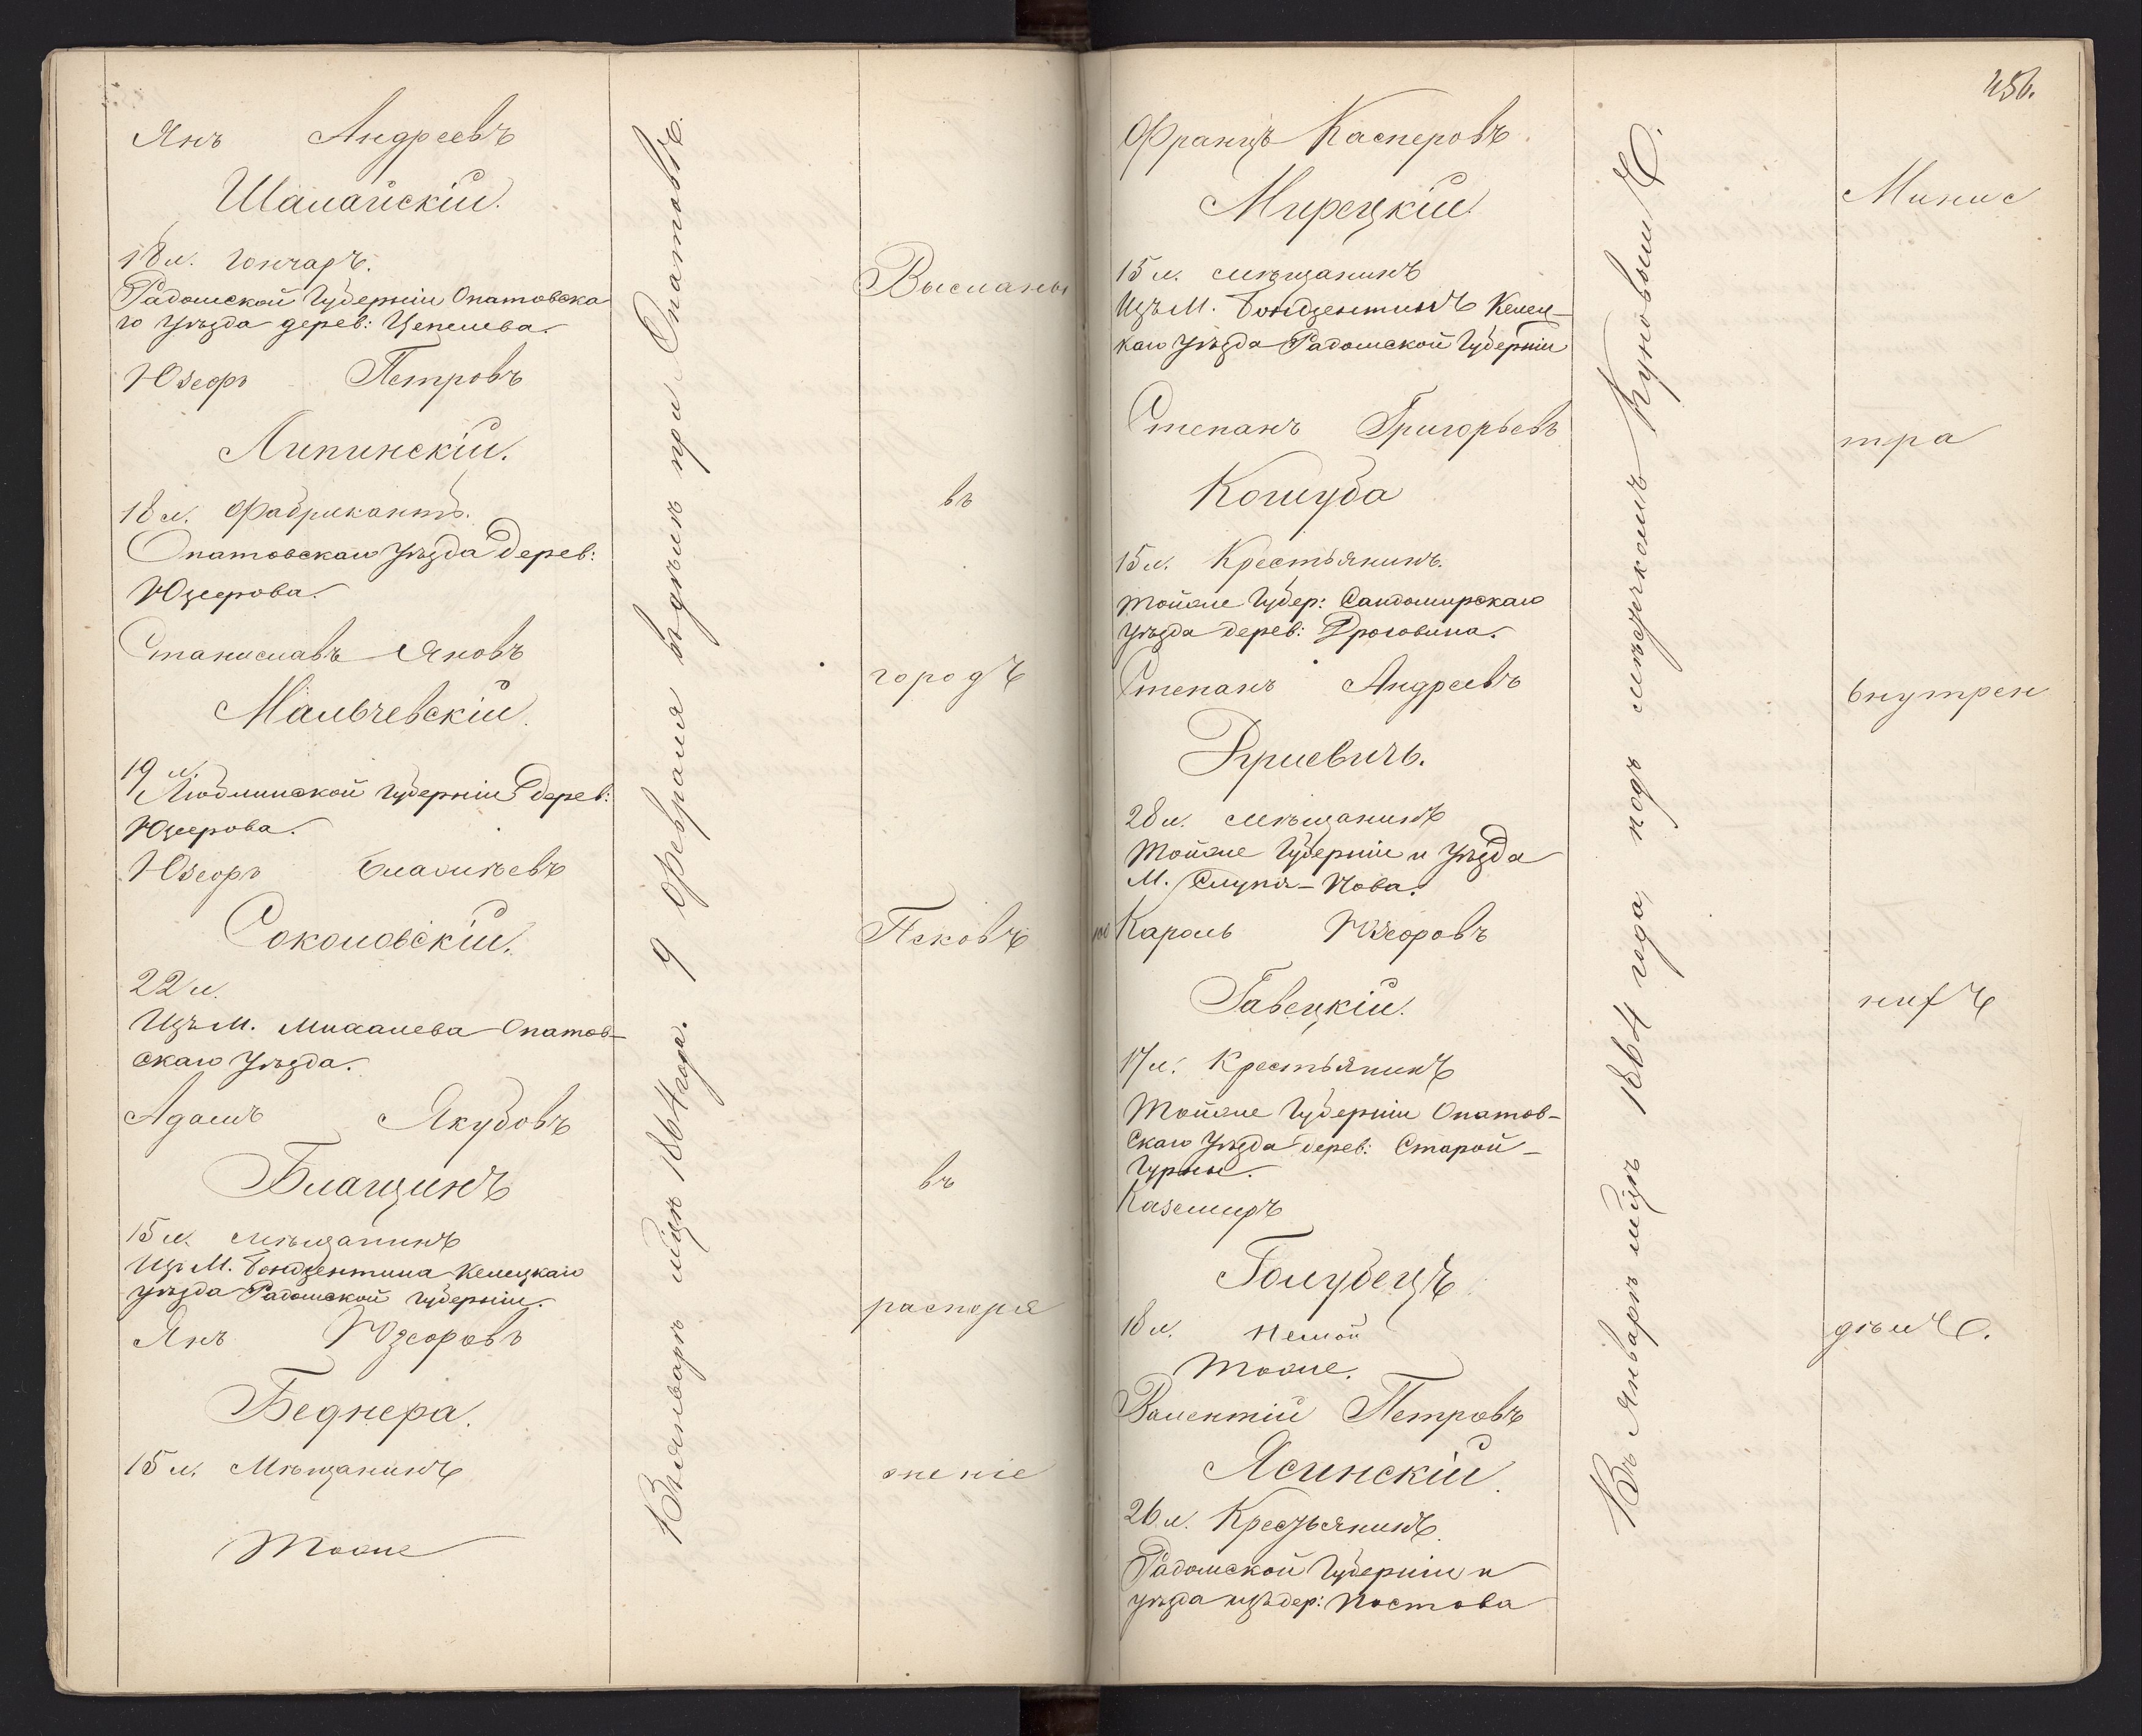 Янъ Андреевъ
Шалайскій.
18 л. гончаръ.
Радомской Губерніи Опатовска
го Уѣзда дерев: Цепелева.
Юзефъ Петровъ
Липинскій.
18 л. фабрикантъ.
Опатовскаго Уѣзда дерев:
Юзефова.
Станиславъ Яновъ
Мальчевскій.
19 л.
Люблинской Губерніи дерев:
Юзефова.
Юзефъ
Соколовскій.
22 л.
Изъ М. Опатов-
скаго Уѣзда.
Адамъ Якубовъ
Блащикъ
15 л. мѣщанинъ
Изъ М. Бондзентина Келецкаго
уѣзда Радомской губерніи.
Янъ Юзефовъ
Беднера.
15 л. Мѣщанинъ
Тоже
Въ январѣ мцѣ 1864 года. 9 Февраля въ дѣлѣ при Опатовѣ.
Высланы
въ
городъ
Псковъ
въ
распоря
женіе
256.
Францъ Касперовъ
Мирецкій.
15 л. мѣщанинъ
Изъ М. Бондзентинъ Келец-
каго уѣзда Радомской Губерніи
Степанъ Григорьевъ
Кошуба
15 л. Крестьянинъ.
Тойже Губер: Сандомирскаго
Уѣзда дерев:
Степанъ Андреевъ
28 л. мѣщанинъ
Тойже Губерніи и Уѣзда
М. Слупя-Нова.
Кароль Юзефовъ
Гавецкій.
17 л. Крестьянинъ
Тойже Губерніи Опатов-
скаго Уѣзда дерев: Старой-
Казимиръ
Голубецъ
18 л. немой
Тоже.
Валентій Петровъ
Ясинскій.
26 л. Крестьянинъ
Радомской Губерніи и
уѣзда изъ дер:
Въ Январѣ мцѣ 1864 года, подъ мѣстечкомъ Куновымъ.
Минис
тра
внутрен
нихъ
дѣлъ.